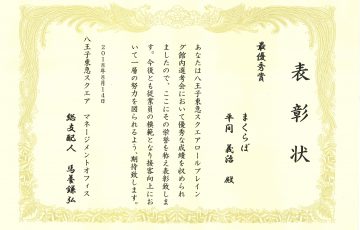 表彰状
最優秀賞
まくらぼ
平岡 義治 殿
あなたは八王子東急スクエアロールプレイン
グ館内選考会において優秀な成績を収められ
ましたので、ここにその栄誉を称え表彰致しま
す。今後とも従業員の模範となり接客向上にお
いて一層の努力を図られるよう、期待致します。
2018年8月14日
八王子東急スクエア マネージメントオフィス
総支配人 馬養 謙弘